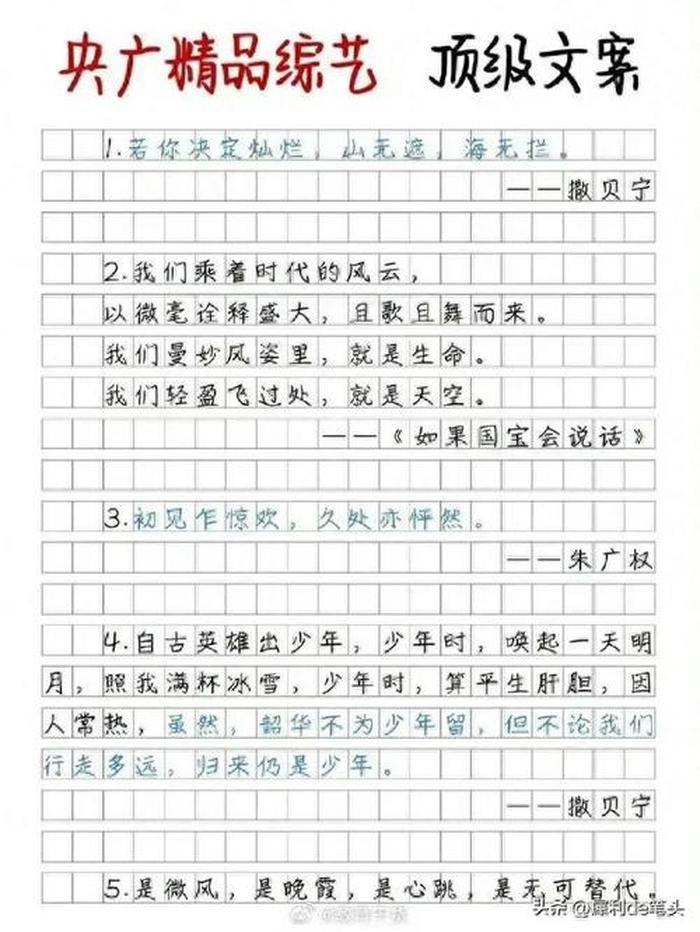 央广精品综艺 顶级文案
1.若你决定灿烂，山无遮，海无拦。
——撒贝宁
2.我们乘着时代的风云，
以微毫诠释盛大，且歌且舞而来。
我们曼妙风姿里，就是生命。
我们轻盈飞过处，就是天空。
——《如果国宝会说话》
3.初见乍惊欢，久处亦怦然。
——朱广权
4.自古英雄出少年，少年时，唤起一天明
月，照我满杯冰雪，少年时，算平生肝胆，因
人常热，虽然，韶华不为少年留，但不论我们
行走多远，归来仍是少年。
——撒贝宁
5.是微风，是晚霞，是心跳，是无可替代。
头条 @犀利de笔头